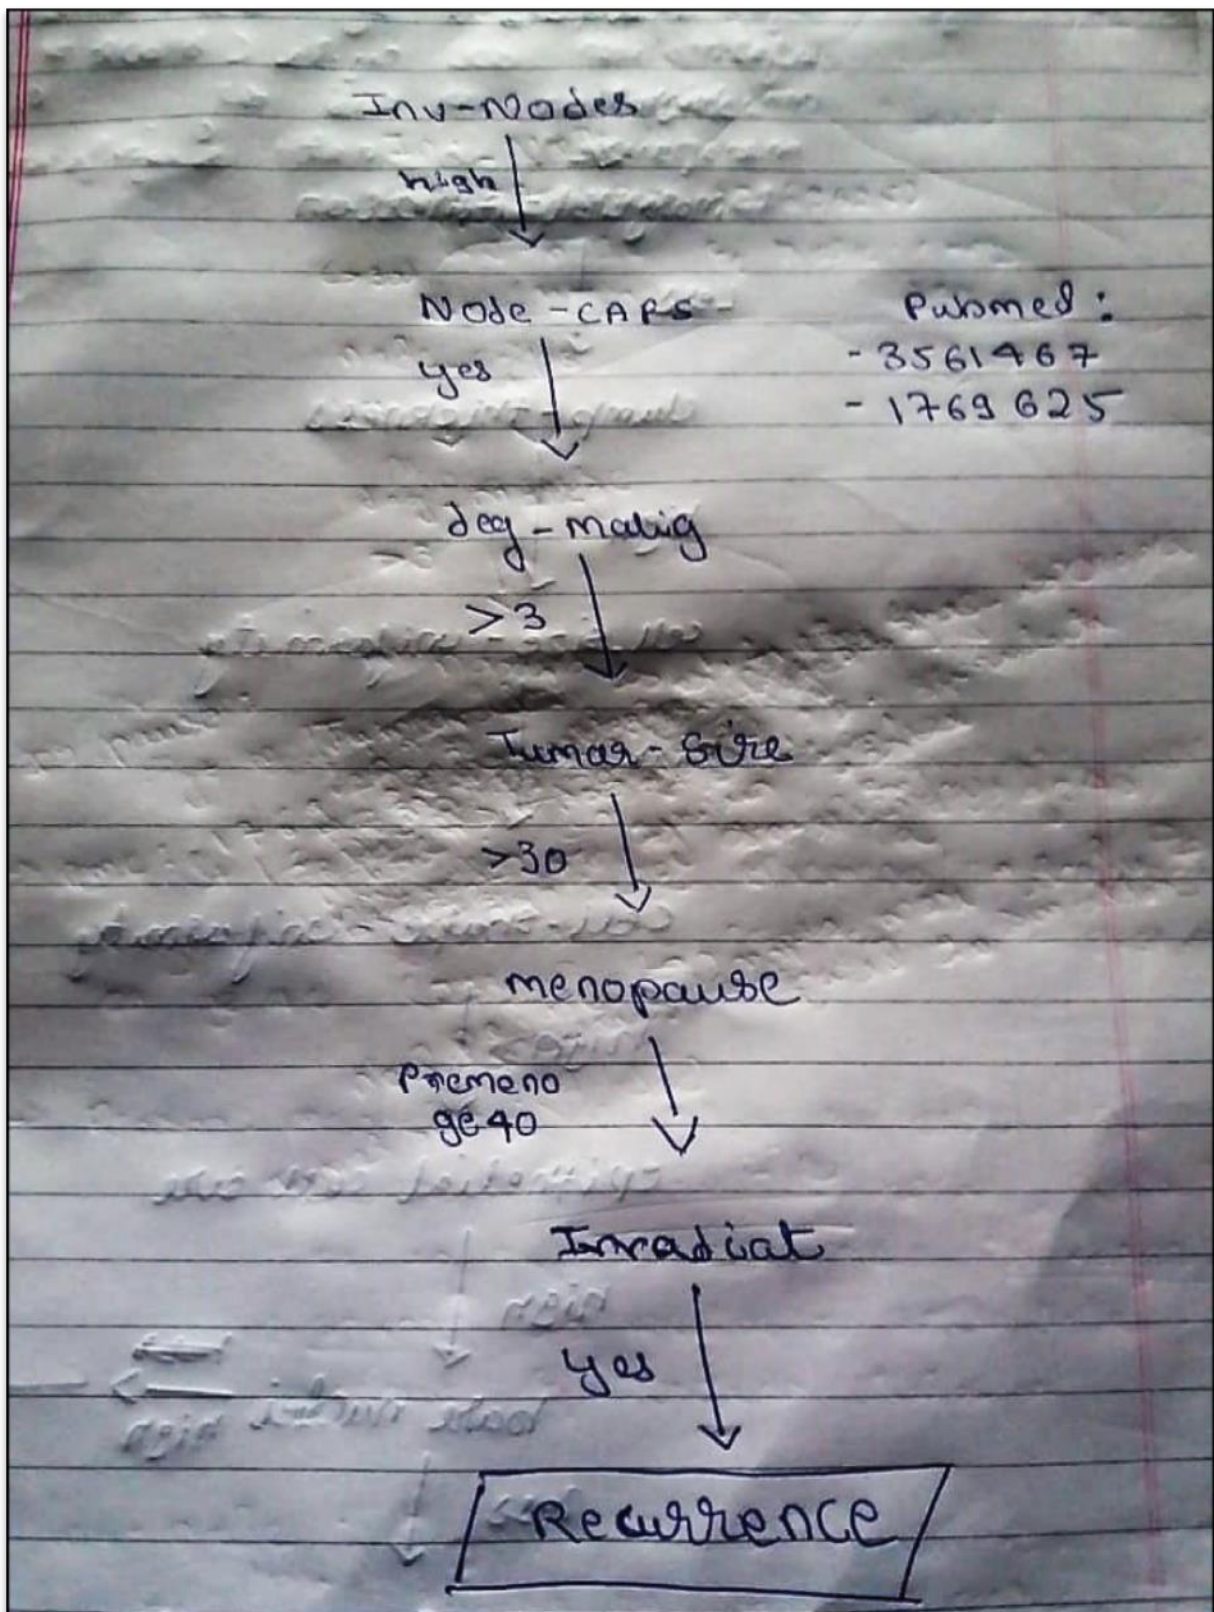 Inv-Nodes
high
Node-CAPS
yes
Pubmed:
- 3561467
- 1769625
deg-malig
>3
Tumar-Size
>30
menopause
Premeno
ge40
Irradiat
yes
Recurrence